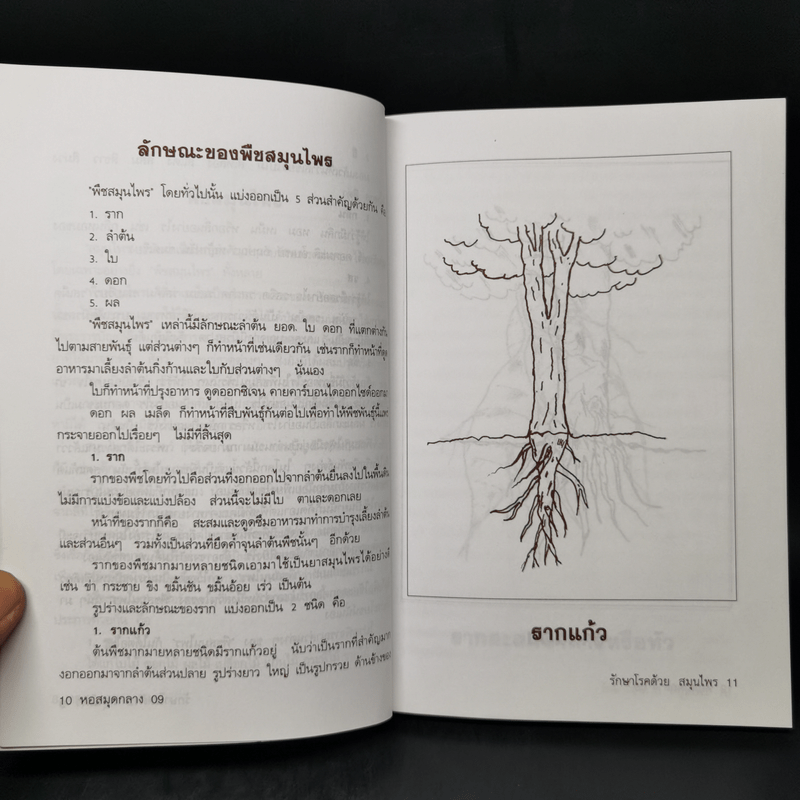 ลักษณะของพืชสมุนไพร
"พืชสมุนไพร" โดยทั่วไปนั้น แบ่งออกเป็น 5 ส่วนสำคัญด้วยกัน คือ
1. ราก
2. ลำต้น
3. ใบ
4. ดอก
5. ผล
"พืชสมุนไพร" เหล่านี้มีลักษณะลำต้น ยอด ใบ ดอก ที่แตกต่างกัน
ไปตามสายพันธุ์ แต่ส่วนต่างๆ ก็ทำหน้าที่เช่นเดียวกัน เช่นรากก็ทำหน้าที่ดูด
อาหารมาเลี้ยงลำต้นกิ่งก้านและใบกับส่วนต่างๆ นั่นเอง
ใบก็ทำหน้าที่ปรุงอาหาร ดูดออกซิเจน คายคาร์บอนไดออกไซด์ออกมา
ดอก ผล เมล็ด ก็ทำหน้าที่สืบพันธุ์กันต่อไปเพื่อทำให้พืชพันธุ์นี้
กระจายออกไปเรื่อยๆ ไม่มีที่สิ้นสุด
1. ราก
รากของพืชโดยทั่วไปคือส่วนที่งอกออกไปจากลำต้นยื่นลงไปในพื้นดิน
ไม่มีการแบ่งข้อและแบ่งปล้อง ส่วนนี้จะไม่มีใบ ตาและดอกเลย
หน้าที่ของรากก็คือ สะสมและดูดซึมอาหารมาทำการบำรุงเลี้ยงลำต้น
และส่วนอื่นๆ รวมทั้งเป็นส่วนที่ยึดค้ำจุนลำต้นพืชนั้นๆ อีกด้วย
รากของพืชมากมายหลายชนิดเอามาใช้เป็นยาสมุนไพรได้อย่างดี
เช่น ข่า กระชาย ขิง ขมิ้นชัน ขมิ้นอ้อย เร่ว เป็นต้น
รูปร่างและลักษณะของราก แบ่งออกเป็น 2 ชนิด คือ
1. รากแก้ว
ต้นพืชมากมายหลายชนิดมีรากแก้วอยู่ นับว่าเป็นรากที่สำคัญมาก
งอกออกมาจากลำต้นส่วนปลาย รูปร่างยาว ใหญ่ เป็นรูปกรวย ด้านข้างของ
10 หอสมุดกลาง 09
รากแก้ว
รักษาโรคด้วย สมุนไพร 11